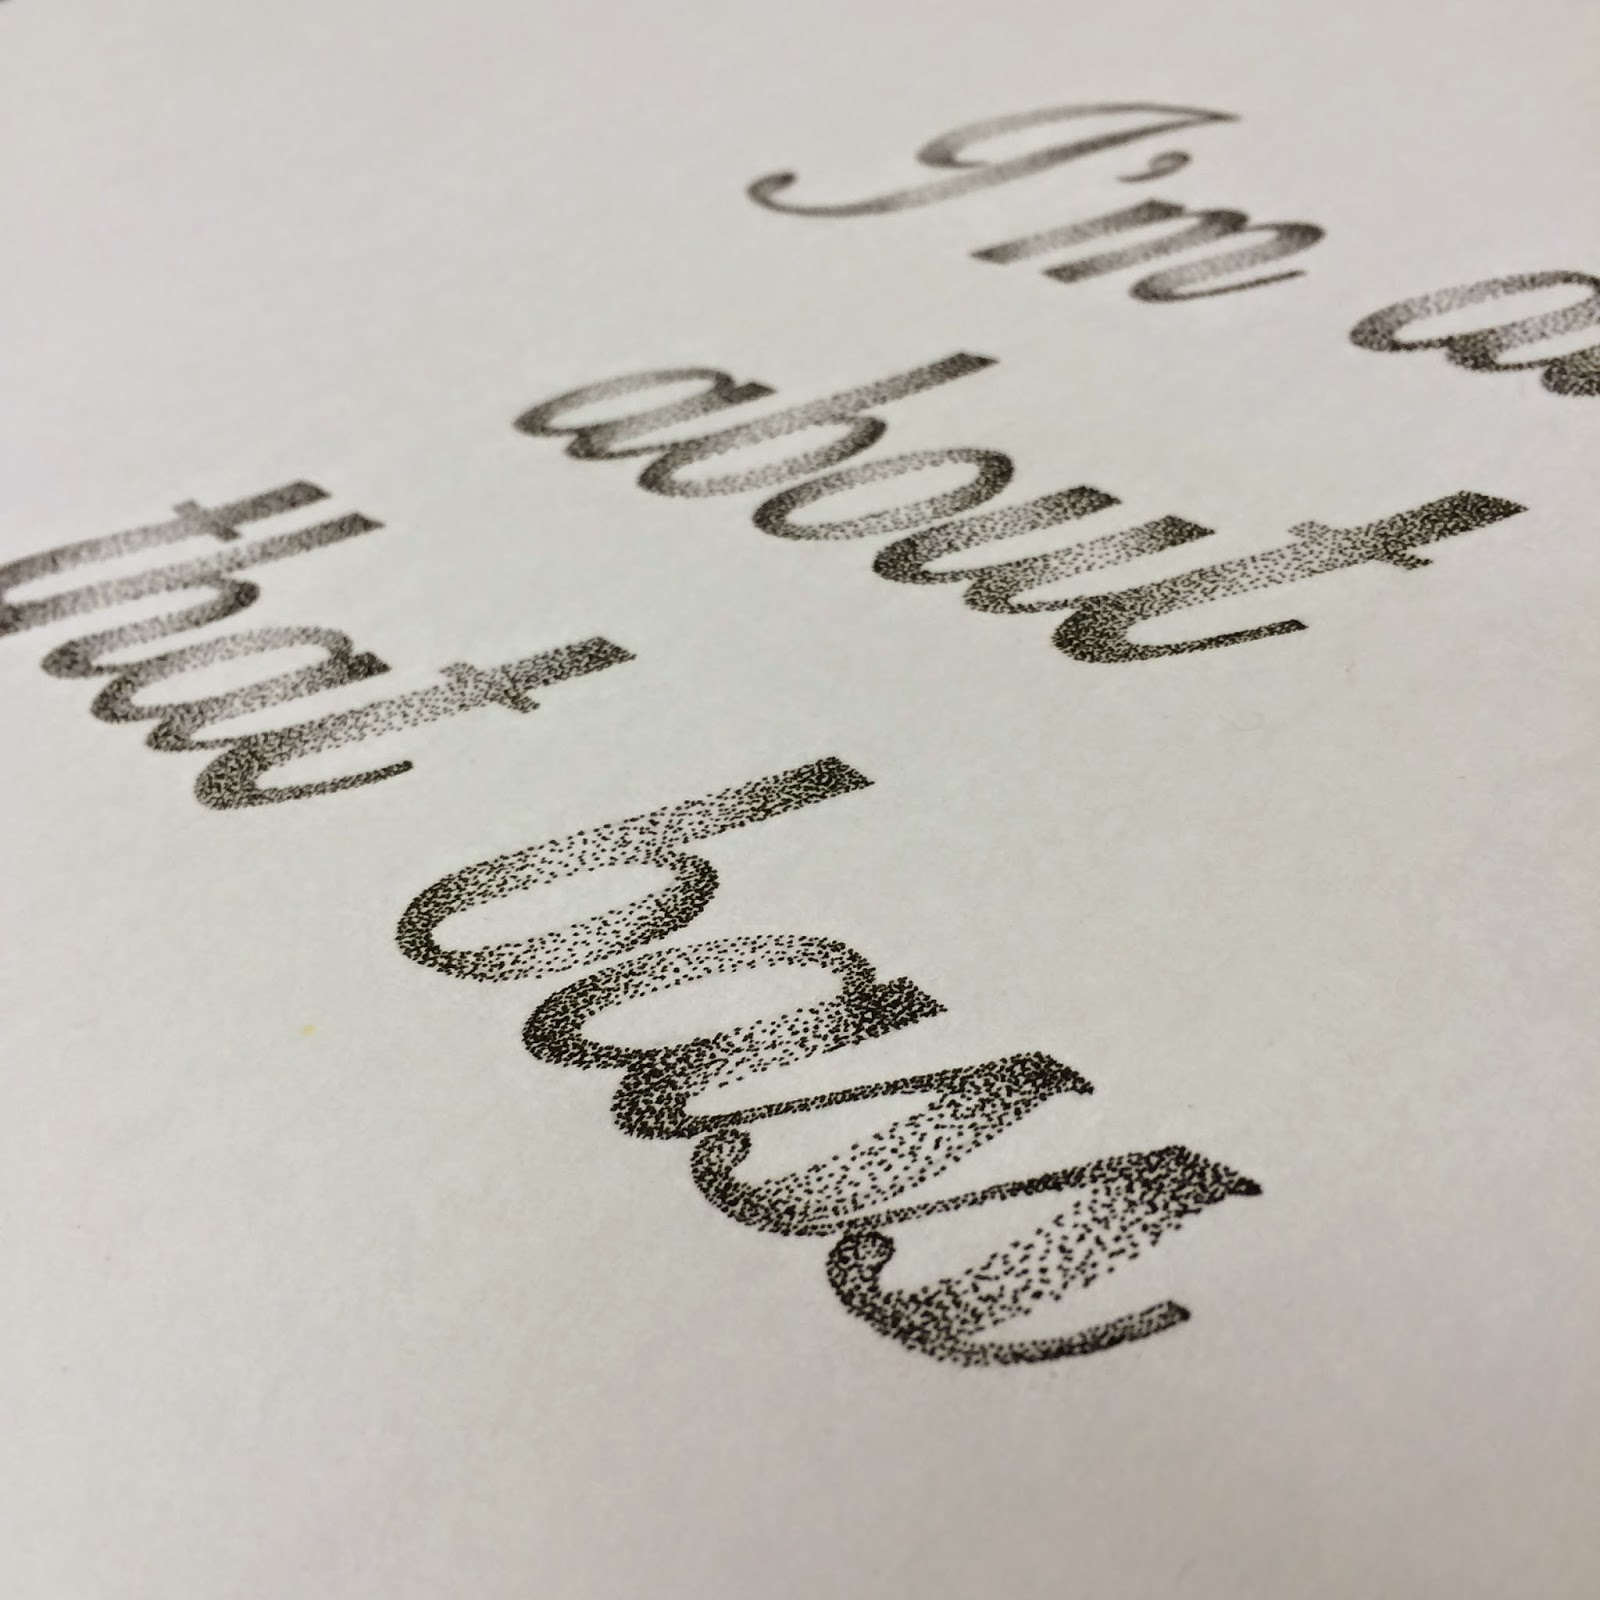 I'm a
about
that bass